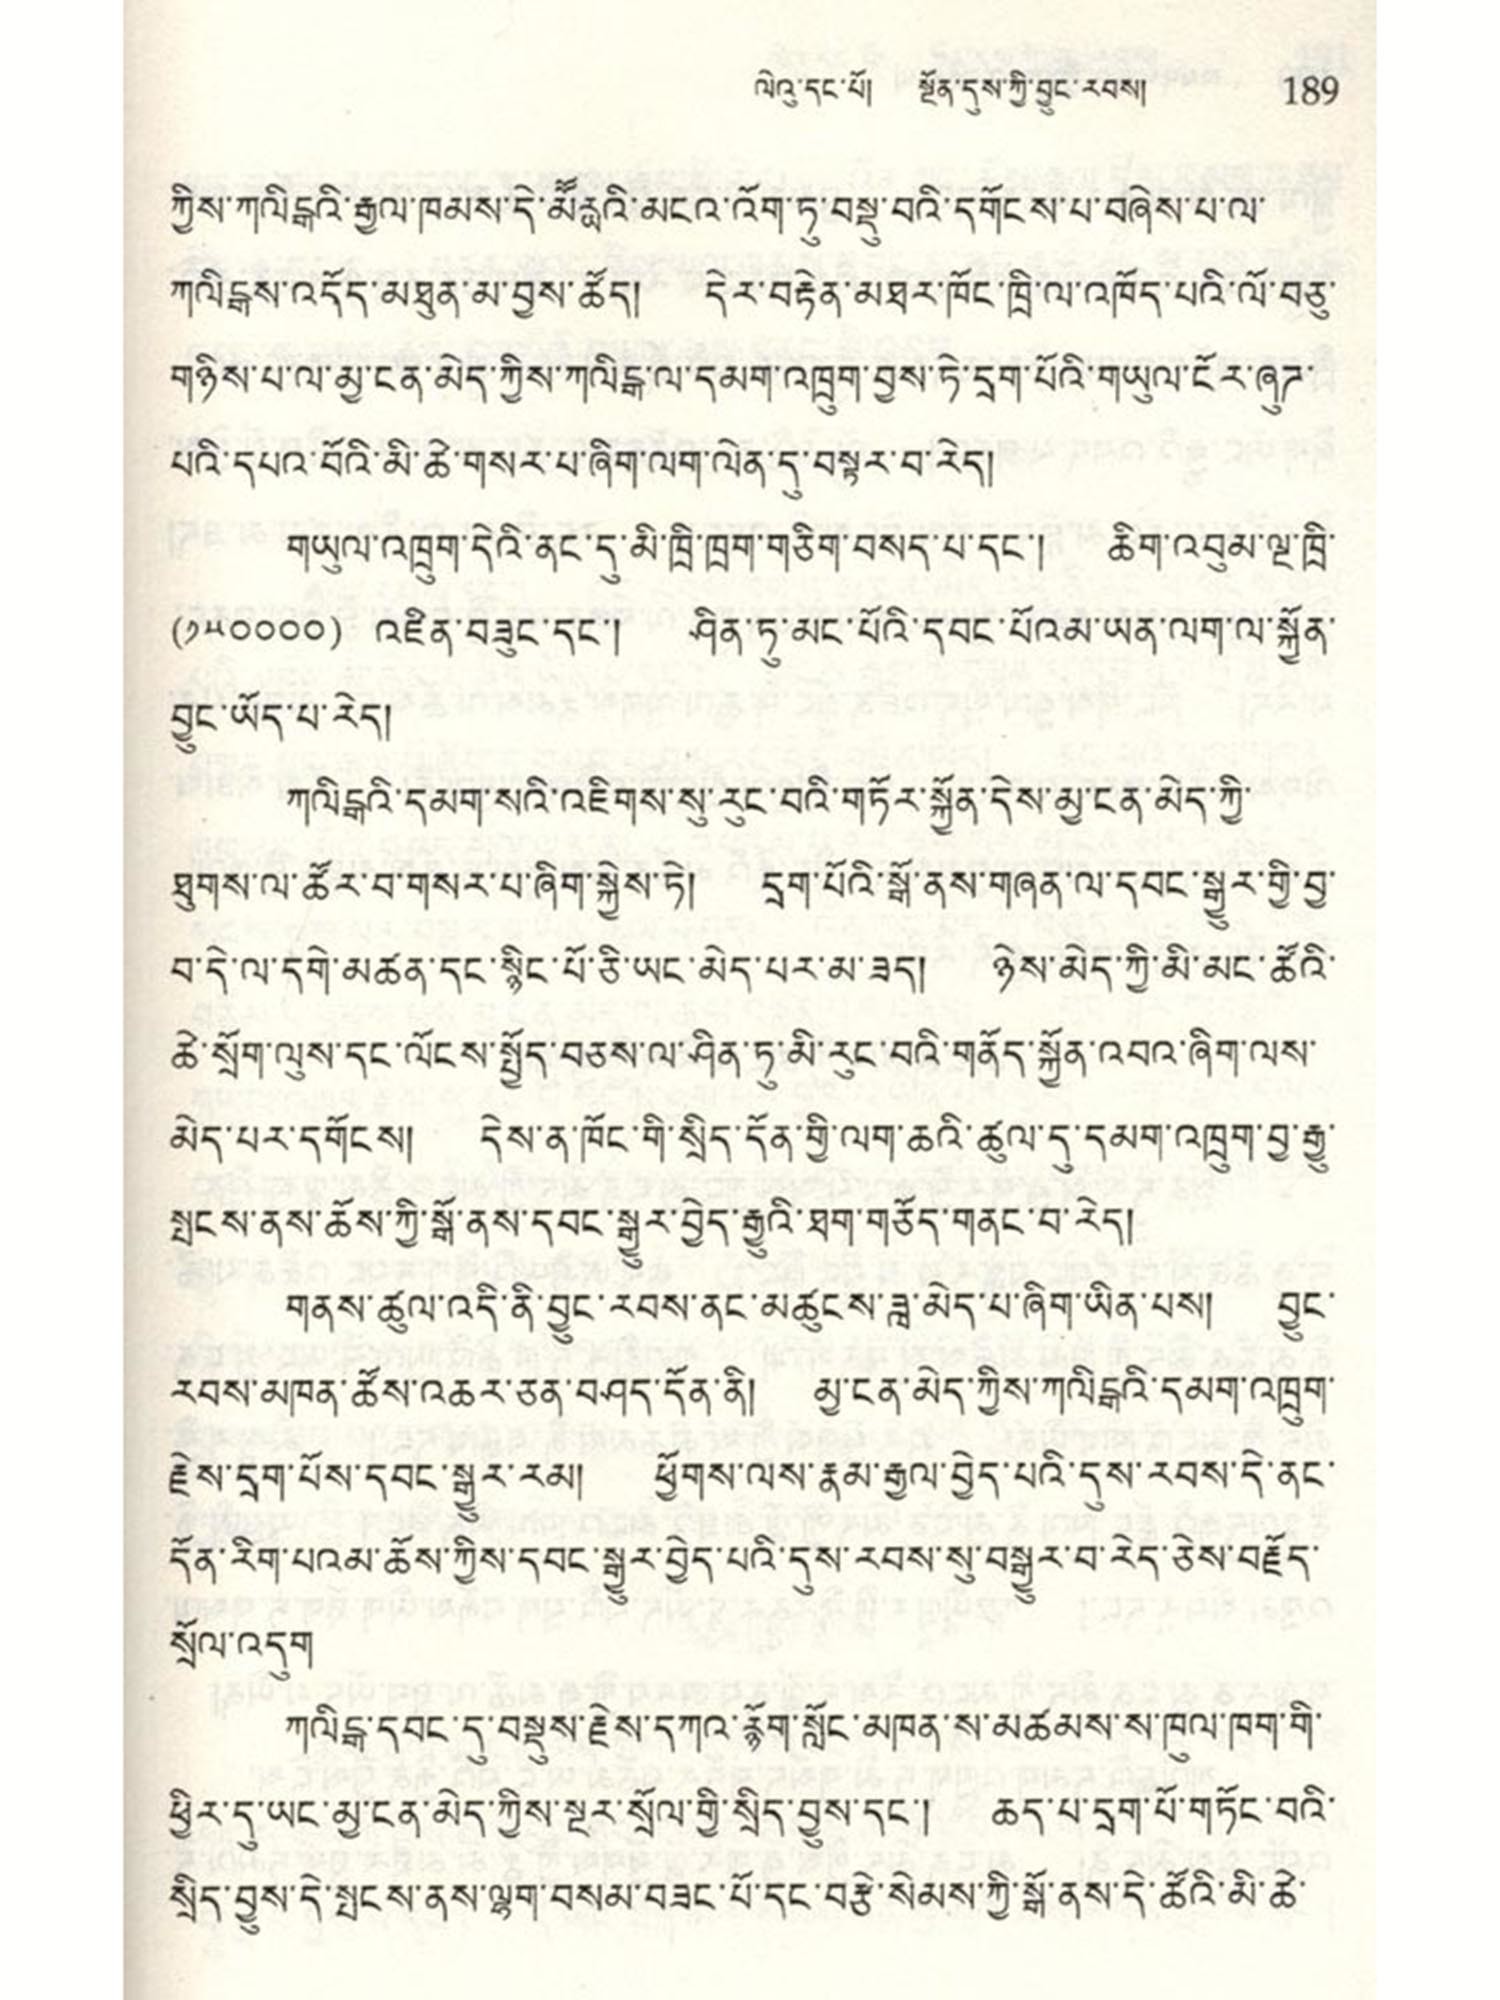 ལེའུ་དང་པོ། སྔོན་དུས་ཀྱི་བྱུང་རབས། 189
ཀྱིས་ཀལིངྒའི་རྒྱལ་ཁམས་དེ་མཽརྱའི་མངའ་འོག་ཏུ་བསྡུ་བའི་དགོངས་པ་བཞེས་པ་ལ་
ཀལིངྒས་འདོད་མཐུན་མ་བྱས་ཚོད། དེར་བརྟེན་མཐར་ཁོང་ཁྲི་ལ་འཁོད་པའི་ལོ་བཅུ་
གཉིས་པ་ལ་མྱ་ངན་མེད་ཀྱིས་ཀལིངྒ་ལ་དམག་འཁྲུག་བྱས་ཏེ་དྲག་པོའི་གཡུལ་ངོར་ཞུཊ་
པའི་དཔའ་བོའི་མི་ཚེ་གསར་པ་ཞིག་ལག་ལེན་དུ་བསྟར་བ་རེད།
གཡུལ་འཁྲུག་དེའི་ནང་དུ་མི་ཁྲི་ཁྲག་གཅིག་བསད་པ་དང་། ཆིག་འབུམ་ལྔ་ཁྲི་
(༡༥༠༠༠༠) འཛིན་བཟུང་དང་། ཤིན་ཏུ་མང་པོའི་དབང་པོའམ་ཡན་ལག་ལ་སྐྱོན་
བྱུང་ཡོད་པ་རེད།
ཀལིངྒའི་དམག་སའི་འཇིགས་སུ་རུང་བའི་གཏོར་སྐྱོན་དེས་མྱ་ངན་མེད་ཀྱི་
ཐུགས་ལ་ཚོར་བ་གསར་པ་ཞིག་སྐྱེས་ཏེ། དྲག་པོའི་སྒོ་ནས་གཞན་ལ་དབང་སྒྱུར་གྱི་བྱ་
བ་དེ་ལ་དགེ་མཚན་དང་སྙིང་པོ་ཅི་ཡང་མེད་པར་མ་ཟད། ཉེས་མེད་ཀྱི་མི་མང་ཚོའི་
ཚེ་སྲོག་ལུས་དང་ལོངས་སྤྱོད་བཅས་ལ་ཤིན་ཏུ་མི་རུང་བའི་གནོད་སྐྱོན་འབའ་ཞིག་ལས་
མེད་པར་དགོངས། དེས་ན་ཁོང་གི་སྲིད་དོན་གྱི་ལག་ཆའི་ཚུལ་དུ་དམག་འཁྲུག་བྱ་རྒྱུ་
སྤངས་ནས་ཆོས་ཀྱི་སྒོ་ནས་དབང་སྒྱུར་བྱེད་རྒྱུའི་ཐག་གཅོད་གནང་བ་རེད།
གནས་ཚུལ་འདི་ནི་བྱུང་རབས་ནང་མཚུངས་ཟླ་མེད་པ་ཞིག་ཡིན་པས། བྱུང་
རབས་མཁན་ཚོས་འཆར་ཅན་བཤད་དོན་ནི། མྱ་ངན་མེད་ཀྱིས་ཀལིངྒའི་དམག་འཁྲུག་
རྗེས་དྲག་པོས་དབང་སྒྱུར་རམ། ཕྱོགས་ལས་རྣམ་རྒྱལ་བྱེད་པའི་དུས་རབས་དེ་ནང་
དོན་རིག་པའམ་ཆོས་ཀྱིས་དབང་སྒྱུར་བྱེད་པའི་དུས་རབས་སུ་བསྒྱུར་བ་རེད་ཅེས་བརྗོད་
སྲོལ་འདུག
ཀལིངྒ་དབང་དུ་བསྡུས་རྗེས་དཀའ་རྙོག་སློང་མཁན་ས་མཚམས་ས་ཁུལ་ཁག་གི་
ཕྱིར་དུ་ཡང་མྱ་ངན་མེད་ཀྱིས་སྔར་སྲོལ་གྱི་སྲིད་བྱུས་དང་། ཆད་པ་དྲག་པོ་གཏོང་བའི་
སྲིད་བྱུས་དེ་སྤངས་ནས་ལྷག་བསམ་བཟང་པོ་དང་བརྩེ་སེམས་ཀྱི་སྒོ་ནས་དེ་ཚོའི་མི་ཚེ་